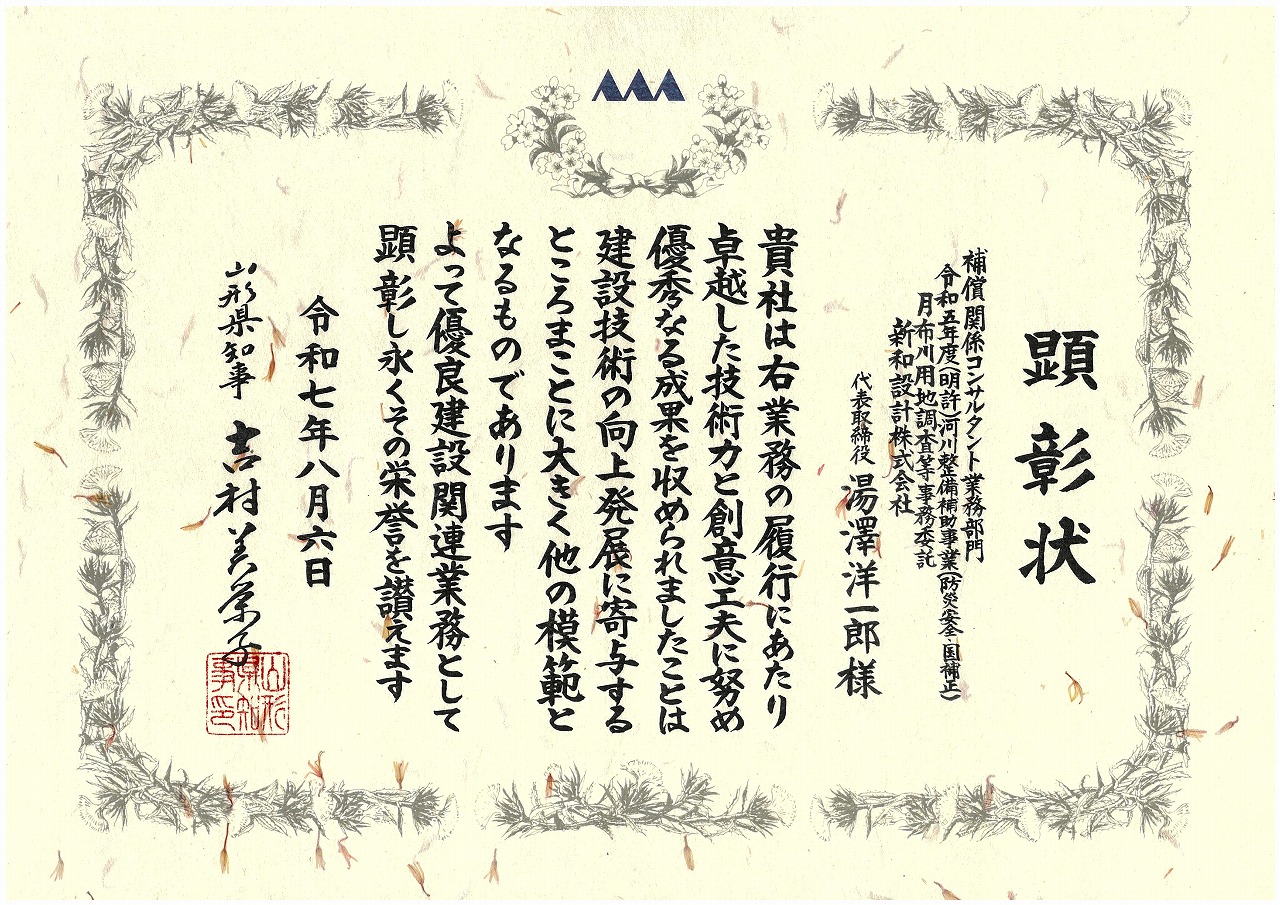 顕彰状
補償関係コンサルタント業務部門
令和五年度(明許)河川整備補助事業(防災・安全・国補正)
月布川用地調査等事務委託
新和設計株式会社
代表取締役 湯澤洋一郎様
貴社は右業務の履行にあたり
卓越した技術力と創意工夫に努め
優秀なる成果を収められましたことは
建設技術の向上発展に寄与する
ところまことに大きく他の模範と
なるものであります
よって優良建設関連業務として
顕彰し永くその栄誉を讃えます
令和七年八月六日
山形県知事 吉村美栄子
山形県知事印